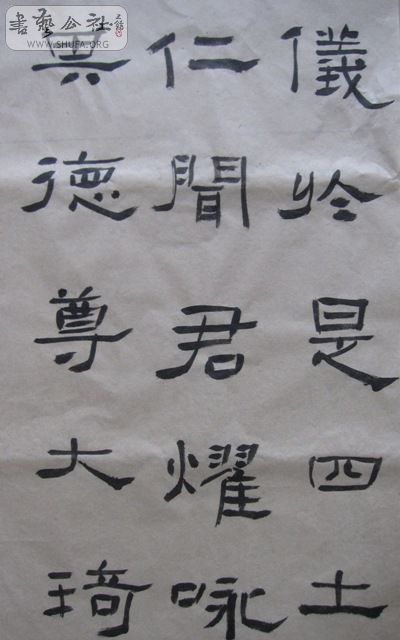 書藝公社
WWW.SHUFA.ORG
儀於是四土
仁聞君耀咏
其德尊大琦